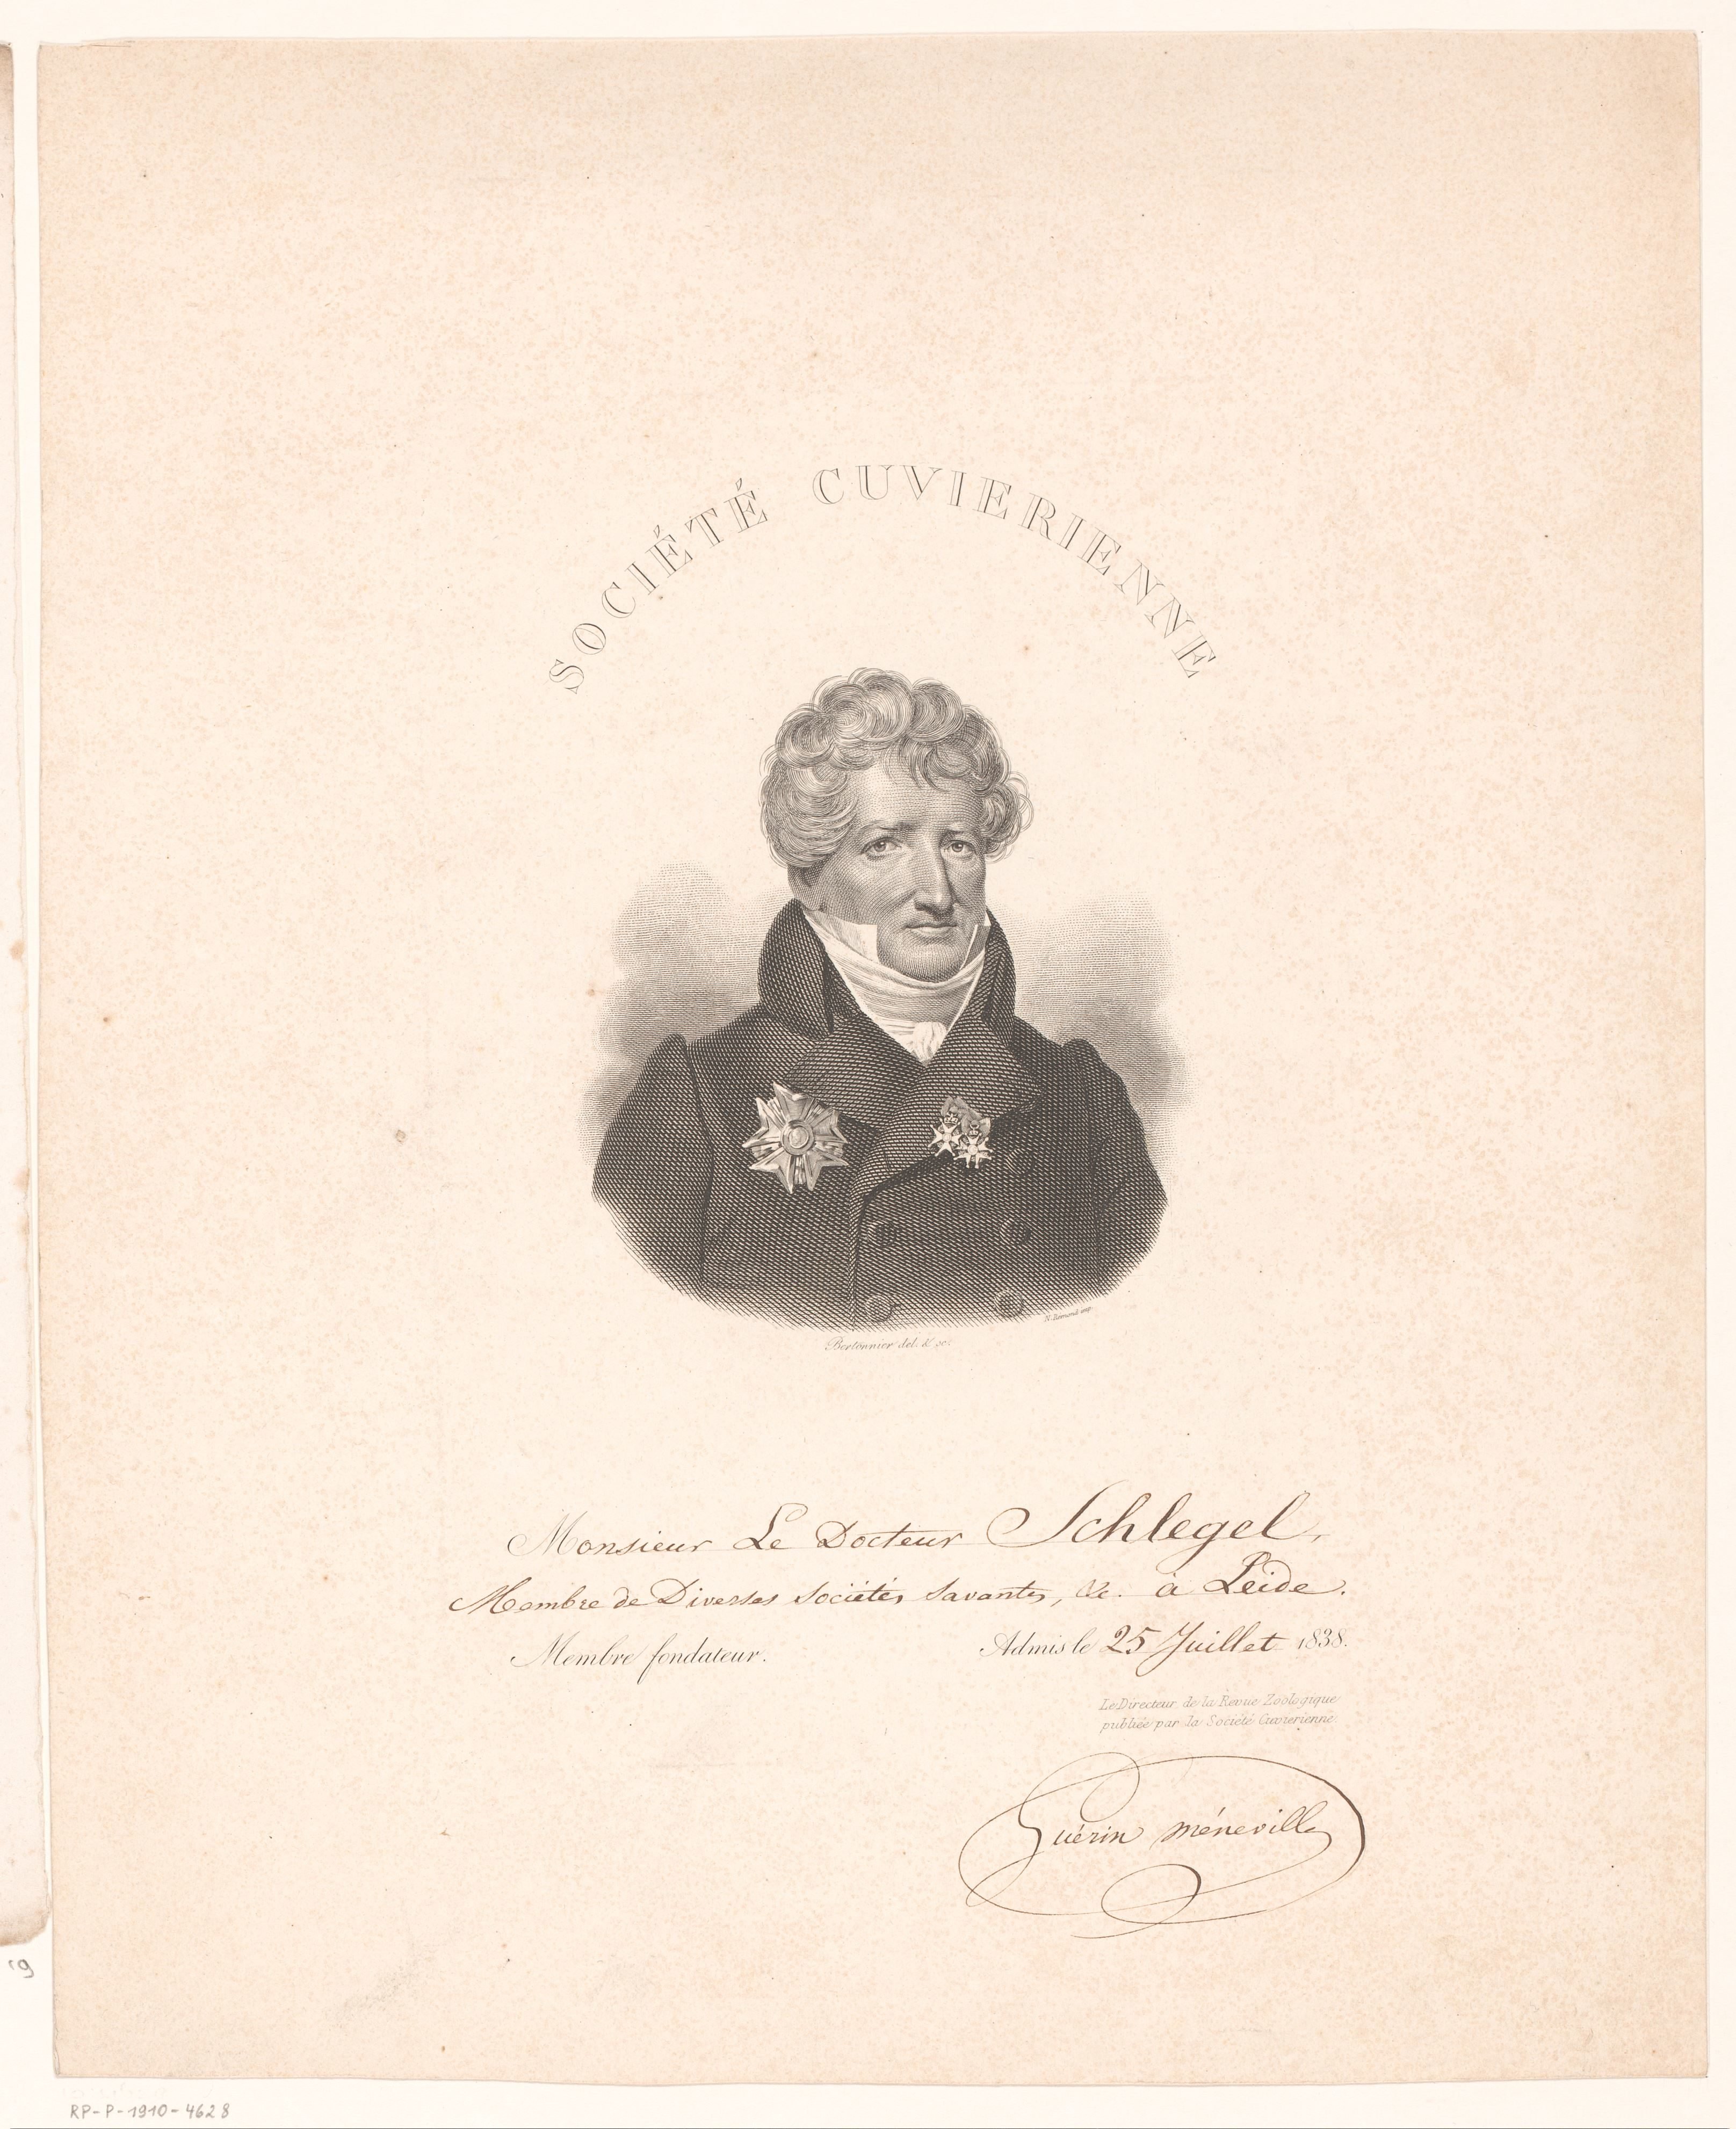 SOCIÉTÉ CUVIERIENNE
N. Remond imp.
Bertonnier del. & sc.
Monsieur Le Docteur Schlegel,
Membre de Diverses Sociétés Savantes, &c. à Leide.
Membre fondateur.
Admis le 25 Juillet 1838.
Le Directeur de la Revue Zoologique
publiée par la Société Cuvierienne.
Guérin Méneville
RP-P-1910-4628